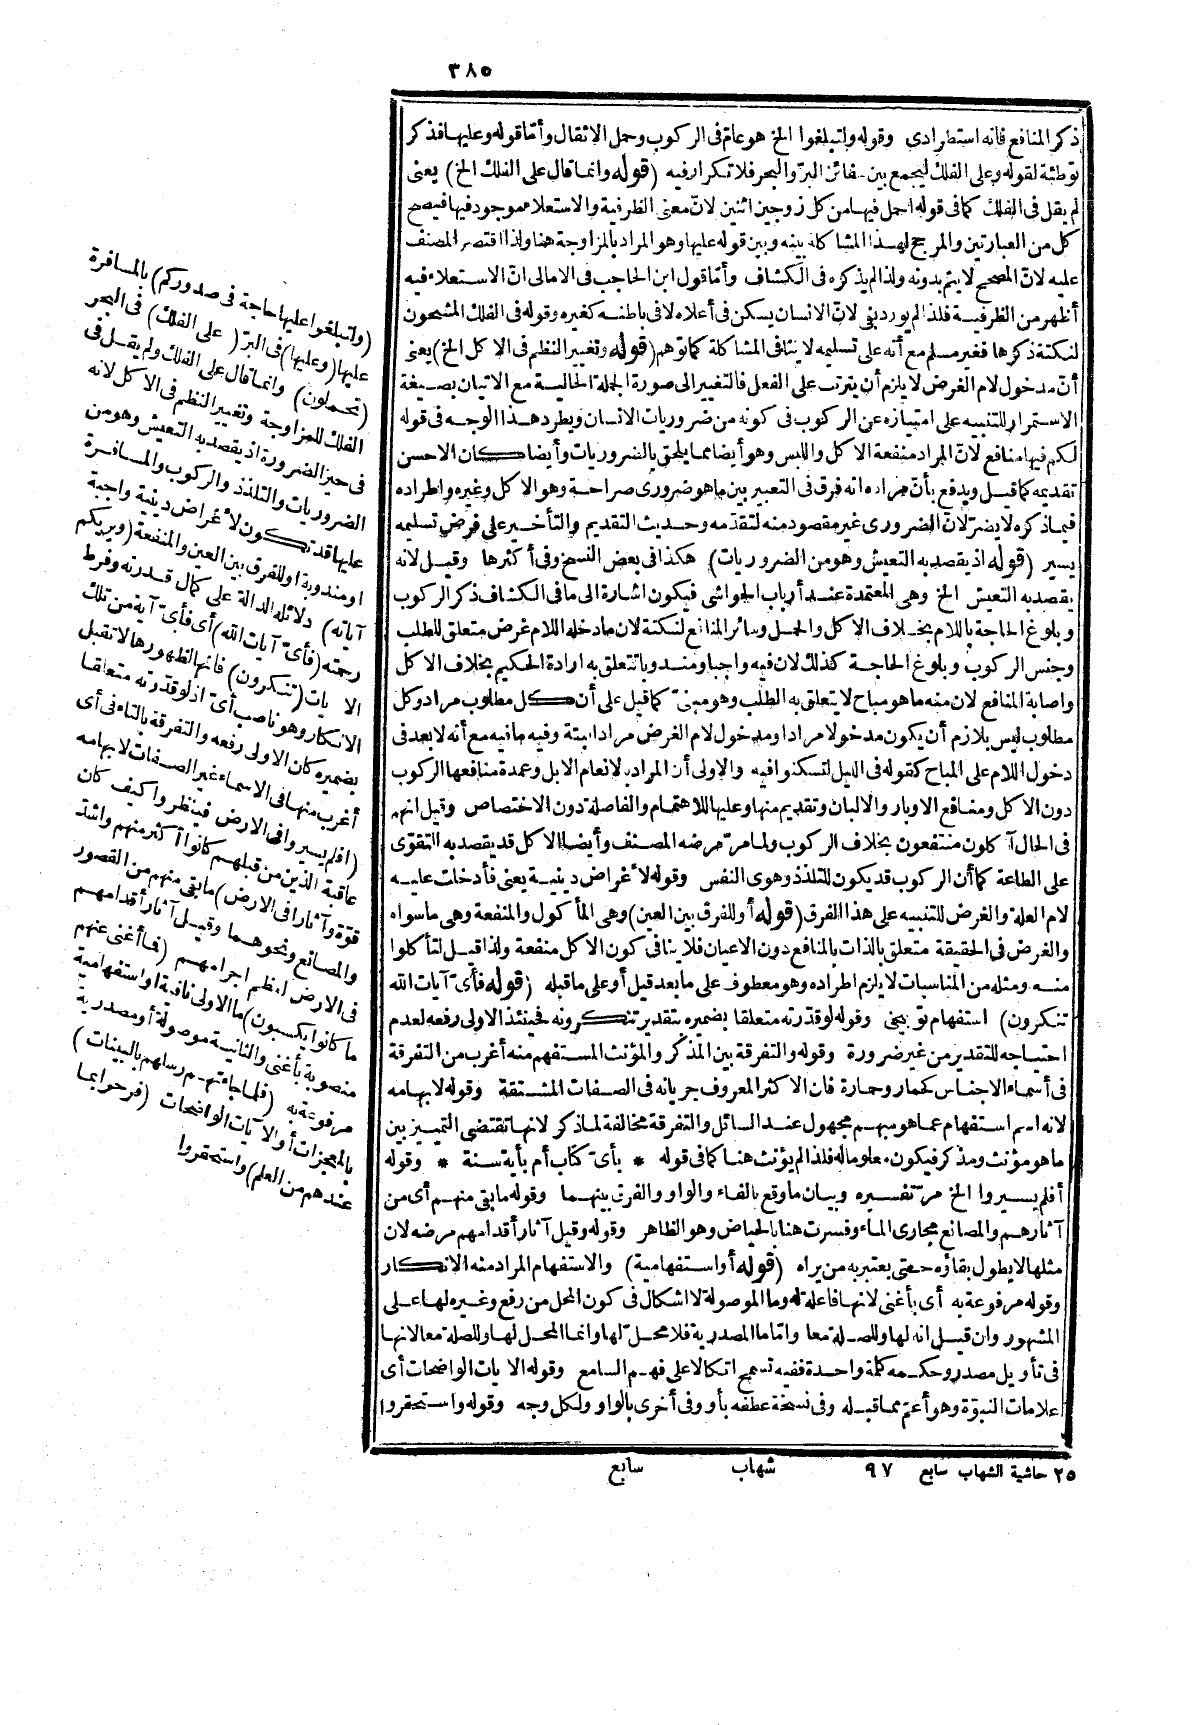 ٣٨٥
ذكر المنافع فانه استطرادى وقوله ولتبلغوا الخ هو عام فى الركوب وحمل الاثقال وأما قوله وعليها فذكر
توطئة لقوله وعلى الفلك ليجمع بين سفائن البر والبحر فلا تكرار فيه (قوله وانما قال على الفلك الخ) يعنى
لم يقل فى الفلك كما فى قوله احمل فيها من كل زوجين اثنين لان معنى الظرفية والاستعلاء موجود فيها فيصح
كل من العبارتين والمرجح لهذا المشاكلة بينه وبين قوله عليها وهو المراد بالمزاوجة هنا ولذا اقتصر المصنف
عليه لان المصحح لا يتم بدونه ولذا لم يذكره فى الكشاف وأما قول ابن الحاجب فى الامالى ان الاستعلاء فيه
أظهر من الظرفية فلذا لم يورد بفى لان الانسان يسكن فى أعلاه لا فى باطنه كغيره وقوله فى الفلك المشحون
لنكتة ذكرها فغير مسلم مع أنه على تسليمه لا ينافى المشاكلة كما توهم (قوله وتغيير النظم فى الاكل الخ) يعنى
أن مدخول لام الغرض لا يلزم أن يترتب على الفعل فالتغيير الى صورة الجملة الحالية مع الاتيان بصيغة
الاستمرار للتنبيه على امتيازه عن الركوب فى كونه من ضروريات الانسان ويطرد هذا الوجه فى قوله
لكم فيها منافع لان المراد منفعة الاكل واللبس وهو أيضا مما يلحق بالضروريات وأيضا كان الاحسن
تقديمه كما قيل ويدفع بأن مراده انه فرق فى التعبير بين ما هو ضرورى صراحة وهو الاكل وغيره واطراده
فيما ذكره لا يضر لان الضرورى غير مقصود منه لتقدمه وحديث التقديم والتأخير على فرض تسليمه
يسير (قوله اذ يقصد به التعيش وهو من الضروريات) هكذا فى بعض النسخ وفى أكثرها وقيل لانه
يقصد به التعيش الخ وهى المعتمدة عند أرباب الحواشى فيكون اشارة الى ما فى الكشاف ذكر الركوب
وبلوغ الحاجة باللام بخلاف الاكل والحمل وسائر المنافع لنكتة لان ما دخله اللام غرض متعلق للطلب
وجنس الركوب وبلوغ الحاجة كذلك لان فيه واجبا ومندوبا تتعلق به ارادة الحكيم بخلاف الاكل
واصابة المنافع لان منه ما هو مباح لا يتعلق به الطلب وهو مبنى كما قيل على أن كل مطلوب مراد وكل
مطلوب ليس بلازم أن يكون مدخولا مرادا ومدخول لام الغرض مرادا بتة وفيه ما فيه مع أنه لا بعد فى
دخول اللام على المباح كقوله فى الليل لتسكنوا فيه والاولى أن المراد بالانعام الابل وعمدة منافعها الركوب
دون الاكل ومنافع الاوبار والالبان وتقديم منها وعليها للاهتمام والفاصلة دون الاختصاص وقيل انهم
فى الحال آكلون منتفعون بخلاف الركوب ولما مر مرضه المصنف وأيضا الاكل قد يقصد به التقوى
على الطاعة كما أن الركوب قد يكون للتلذذ وهوى النفس وقوله لأغراض دينية يعنى فأدخلت عليه
لام العلة والغرض للتنبيه على هذا الفرق (قوله أو للفرق بين العين) وهى المأكول والمنفعة وهى ما سواه
والغرض فى الحقيقة متعلق بالذات بالمنافع دون الاعيان فلا ينافى كون الاكل منفعة ولذا قيل لتأكلوا
منه ومثله من المناسبات لا يلزم اطراده وهو معطوف على ما بعد قيل أو على ما قبله (قوله فأى آيات الله
تنكرون) استفهام توبيخى وقوله لو قدرته متعلقا بضميره بتقدير تنكرونه فحينئذ الاولى رفعه لعدم
احتياجه للتقدير من غير ضرورة وقوله والتفرقة بين المذكر والمؤنث المستفهم منه أغرب من التفرقة
فى أسماء الاجناس كحمار وحمارة فان الاكثر المعروف جريانه فى الصفات المشتقة وقوله لابهامه
لانه اسم استفهام عما هو مبهم مجهول عند السائل والتفرقة مخالفة لما ذكر لانها تقتضى التمييز بين
ما هو مؤنث ومذكر فيكون معلوما له فلذا لم يؤنث هنا كما فى قوله * بأى كتاب أم بأية سنة * وقوله
أفلم يسيروا الخ مر تفسيره وبيان ما وقع بالفاء والواو والفرق بينهما وقوله ما بقى منهم أى من
آثارهم والمصانع مجارى الماء وفسرت هنا بالحياض وهو الظاهر وقوله وقيل آثار أقدامهم مرضه لان
مثلها لا يطول بقاؤه حتى يعتبر به من يراه (قوله أو استفهامية) والاستفهام المراد منه الانكار
وقوله مرفوعة به أى بأغنى لانها فاعلة له وما الموصولة لا اشكال فى كون المحل من رفع وغيره لها على
المشهور وان قيل انه لها وللصلة معا واما ما المصدرية فلا محل لها وانما المحل لها وللصلة معا لانها
فى تأويل مصدر وحكمه كلمة واحدة ففيه تسمح اتكالا على فهم السامع وقوله الآيات الواضحات أى
علامات النبوة وهو أعم مما قبله وفى نسخة عطفه بأو وفى أخرى بالواو ولكل وجه وقوله واستحقروا
(ولتبلغوا عليها حاجة فى صدوركم) بالمسافرة
عليها (وعليها) فى البر (وعلى الفلك) فى البحر
(تحملون) وانما قال على الفلك ولم يقل فى
الفلك للمزاوجة وتغيير النظم فى الاكل لانه
فى حيز الضرورة اذ يقصد به التعيش وهو من
الضروريات والتلذذ والركوب والمسافرة
عليها قد تكون لأغراض دينية واجبة
او مندوبة او للفرق بين العين والمنفعة (ويريكم
آياته) دلائله الدالة على كمال قدرته وفرط
رحمته (فأى آيات الله) أى فأى آية من تلك
الآيات (تنكرون) فانها لظهورها لا تقبل
الانكار وهو ناصب أى اذ لو قدرته متعلقا
بضميره كان الاولى رفعه والتفرقة بالتاء فى أى
أغرب منها فى الاسماء غير الصفات لابهامه
(افلم يسيروا فى الارض فينظروا كيف كان
عاقبة الذين من قبلهم كانوا أكثر منهم واشد
قوة وآثارا فى الارض) ما بقى منهم من القصور
والمصانع ونحوهما وقيل آثار أقدامهم
فى الارض لعظم اجرامهم (فما أغنى عنهم
ما كانوا يكسبون) ما الاولى نافية او استفهامية
منصوبة بأغنى والثانية موصولة أو مصدرية
مرفوعة به (فلما جاءتهم رسلهم بالبينات)
بالمعجزات أو الآيات الواضحات (فرحوا بما
عندهم من العلم) واستحقروا
٢٥ حاشية الشهاب سابع ٩٧ شهاب سابع